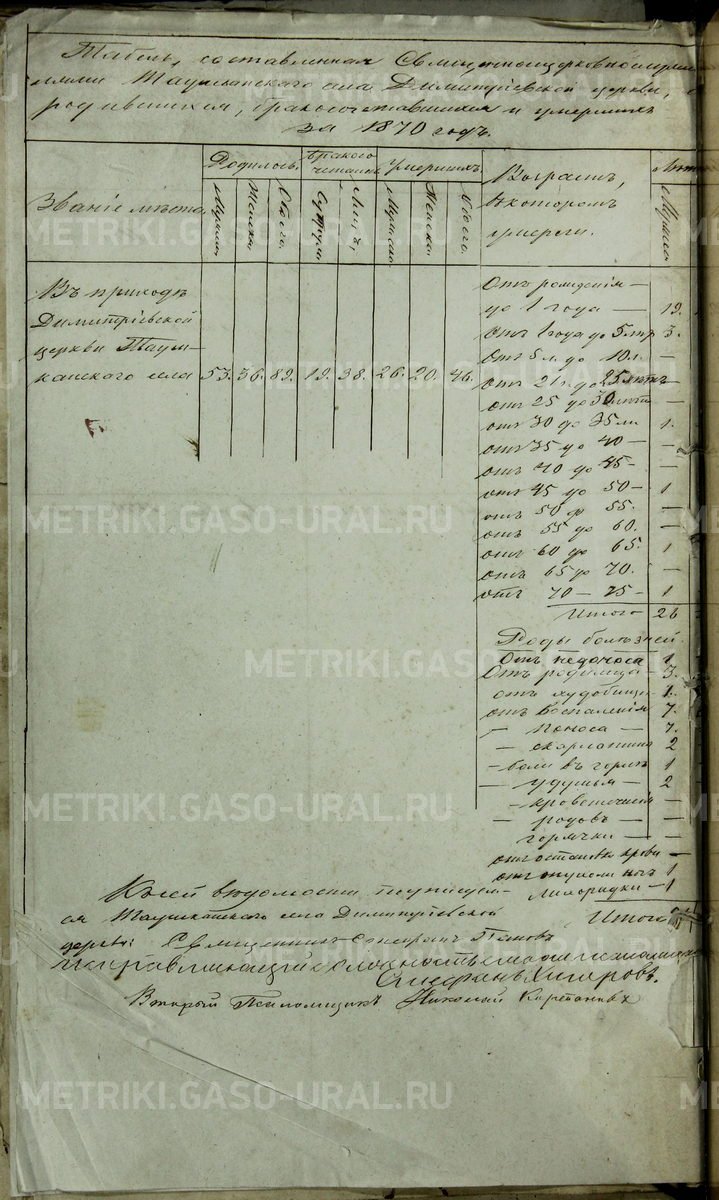 Табель, составленная Священноцерковнослужи
телями Таушканского села Димитріевской церкви, о
родившихся, бракосочетавшихся и умершихъ
за 1870 годъ.
Званіе мѣста.
Родилось.
Мужска.
Женска.
Обоего.
Бракосо
четались
Супруж.
Лицъ.
Умершихъ.
Мужска.
Женска.
Обоего.
Возрастъ,
въ которомъ
умерли.
Мужска.
Въ приходѣ
Димитріевской
церкви Тауш-
канского села 53. 36. 89. 19. 38. 26. 20. 46.
Отъ рожденія —
до 1 года — 19.
Отъ 1 года до 5 лтъ 3.
Отъ 5 л. до 10 л. —
отъ 21 г. до 25 лѣтъ —
отъ 25 до 30 лѣтъ —
отъ 30 до 35 л. 1.
отъ 35 до 40 — —
отъ 40 до 45 — —
отъ 45 до 50 — 1
отъ 50 до 55. —
отъ 55 до 60. —
отъ 60 до 65. 1
отъ 65 до 70. —
отъ 70 — 75 — 1
Итого 26
Роды болѣзней.
Отъ недоноса 1
Отъ родимца — 3.
отъ худобищи 1.
отъ Воспаленія 7.
— поноса — 7.
— скарлатины 2
— боли въ горлѣ 1
— удушья — 2
— кровотеченія —
— родовъ — —
горячки — —
отъ остановк крови —
отъ опухоли ногъ 1
Лихорадки — 1
Итого
Къ сей вѣдомости подписуем-
ся Таушканского села Димитріевской
церкви: Священникъ Поповъ
исправляющій должность
Стефанъ
Вторый Псаломщикъ Николай
METRIKI.GASO-URAL.RU